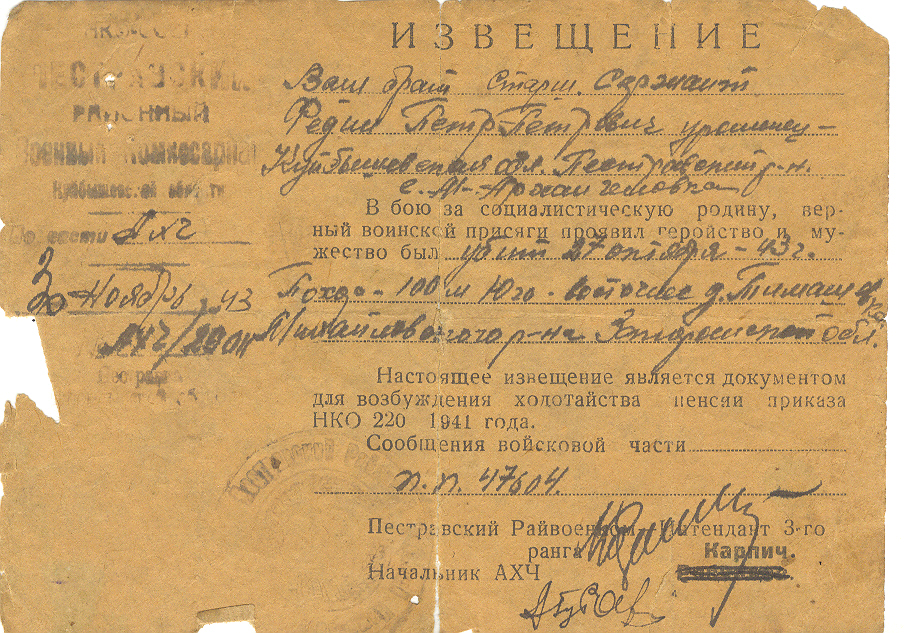 ИЗВЕЩЕНИЕ
ПЕСТРАВСКИЙ
РАЙОННЫЙ
Военный Комиссариат
Куйбышевской области
По части АХЧ
30 Ноябрь 43
АХЧ/
Ваш брат Старш. Сержант
Федин Петр Петрович уроженец-
Куйбышевская обл. Пестравский р-н.
с. М-Архангеловка
В бою за социалистическую родину, вер-
ный воинской присяги проявил геройство и му-
жество был убит 27 октября - 43 г.
100 м Юго-восточнее д. Тимашевка
Михайловского р-на обл.
Настоящее извещение является документом
для возбуждения ходотайства пенсии приказа
НКО 220 1941 года.
Сообщения войсковой части
п.п. 47604.
Пестравский Райвоенком Интендант 3-го
ранга Карпич.
Начальник АХЧ